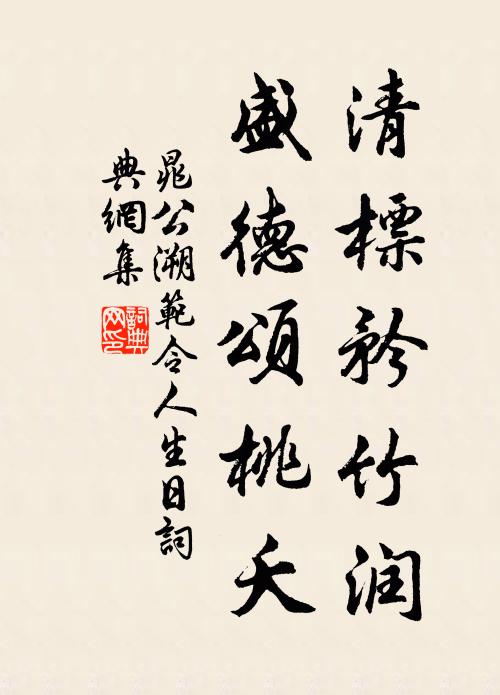 清標矜竹润
盛德頌桃夭
晁公溯範令人生日詞
典網集
詞典網印